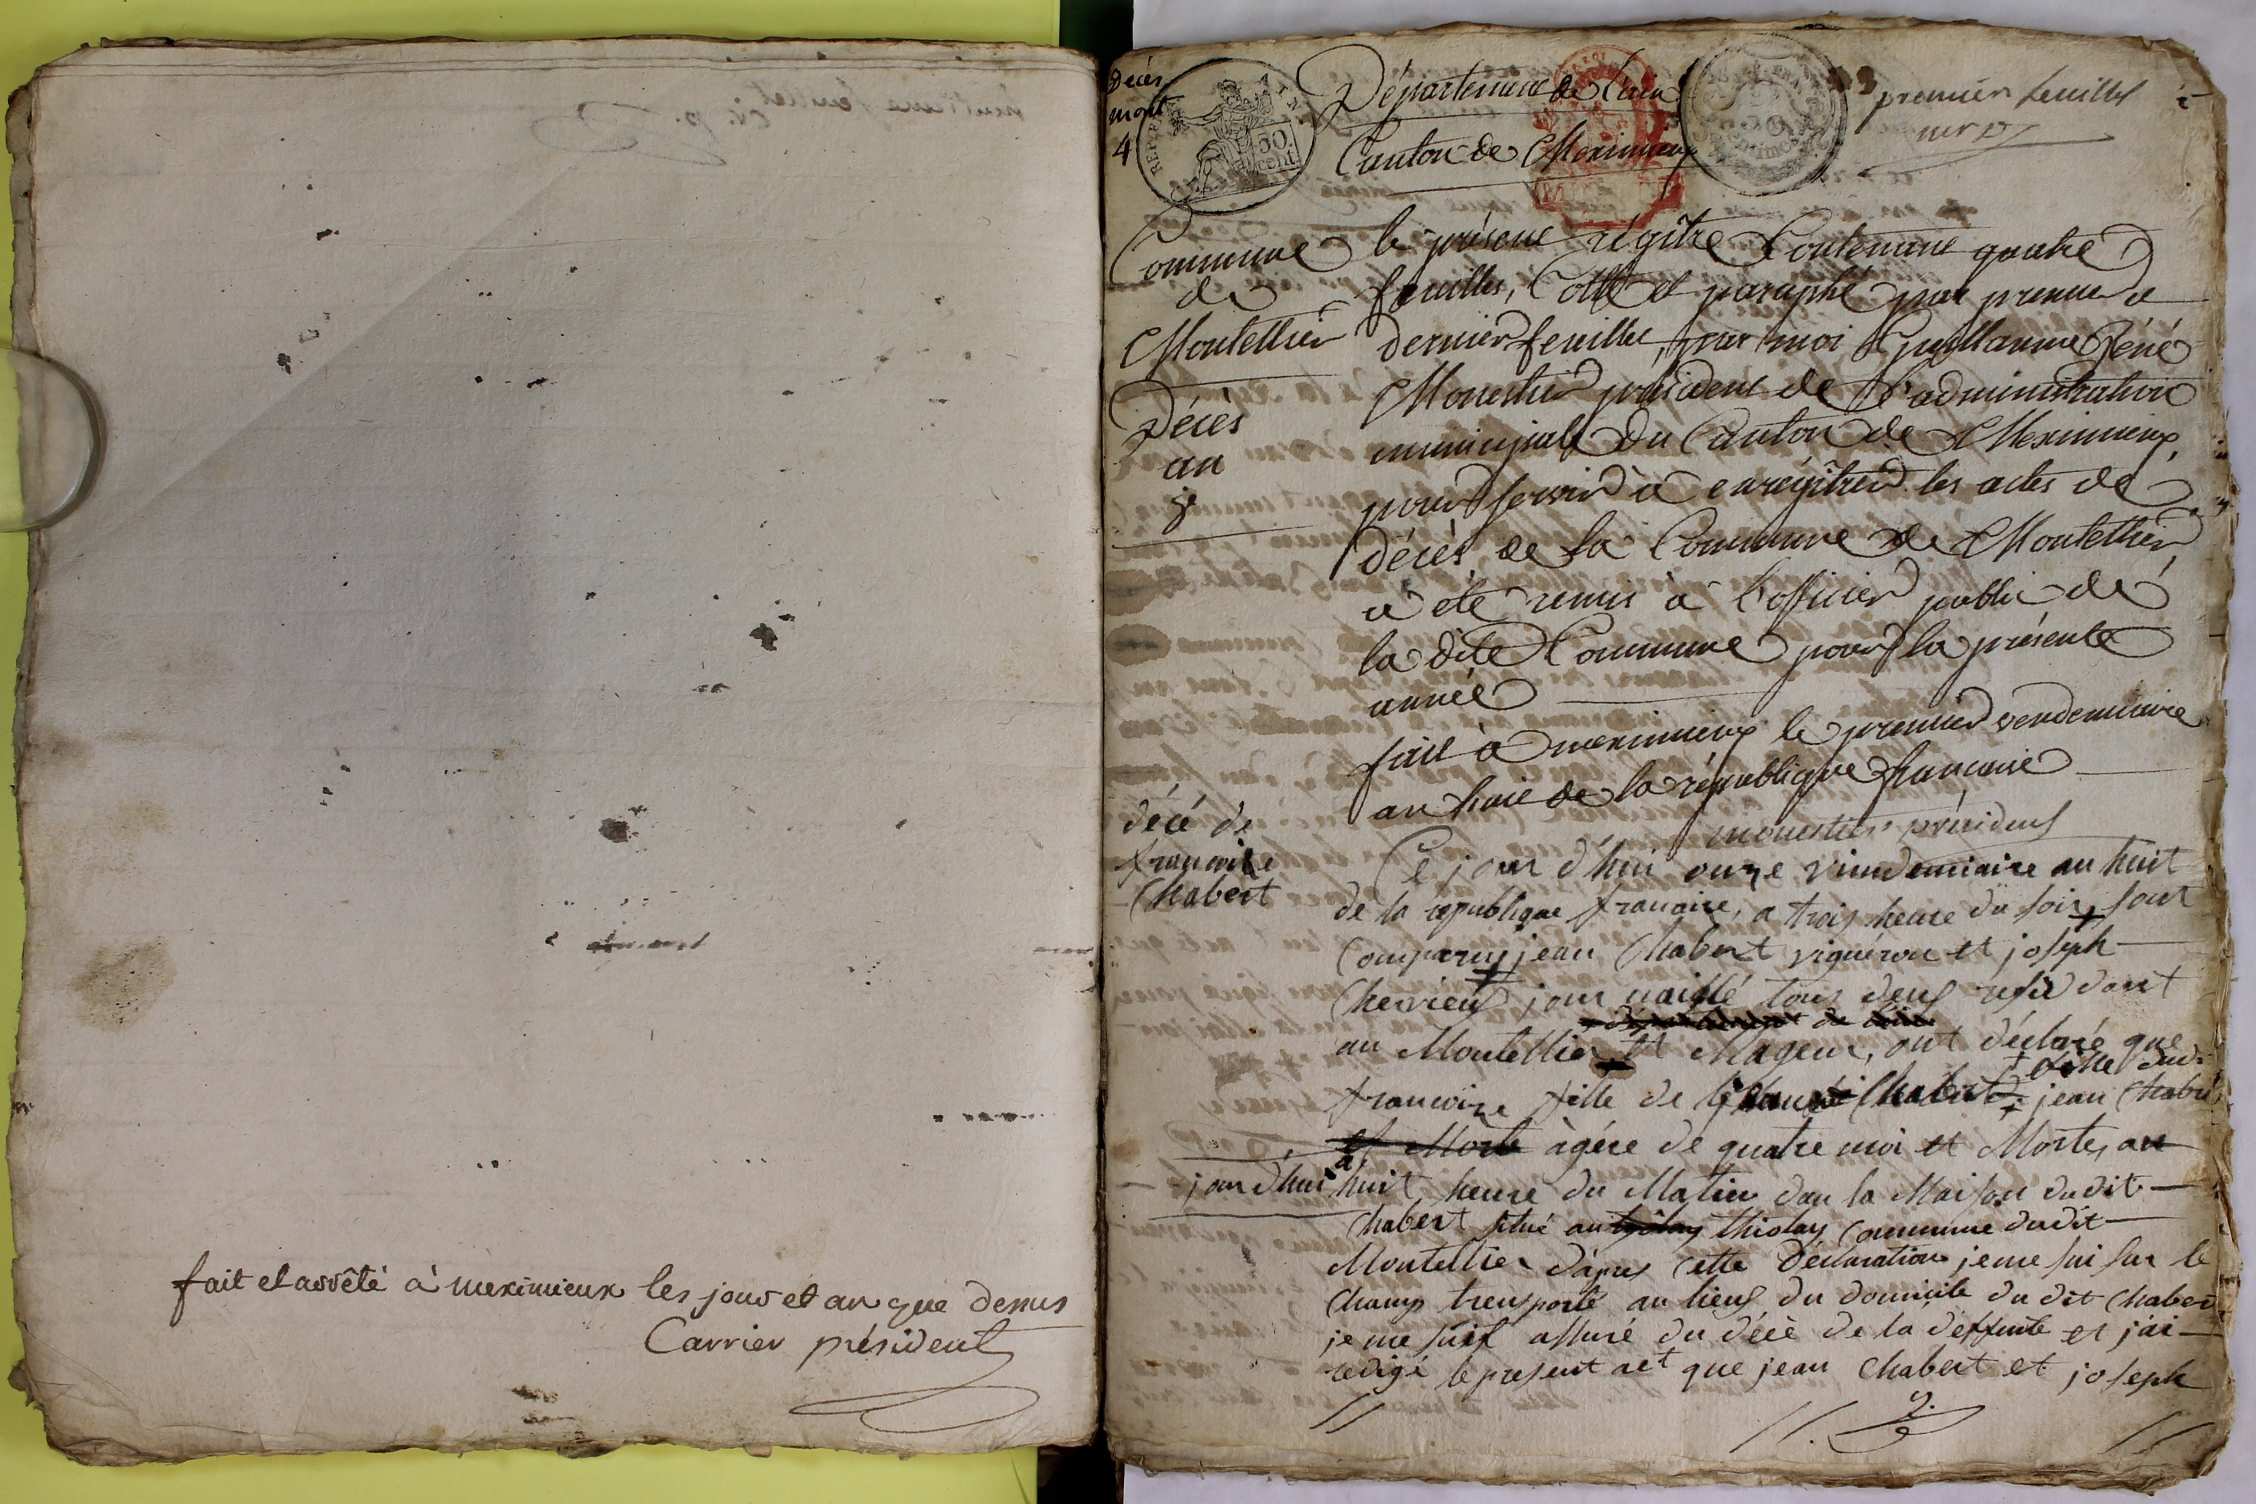 huitieme feuillet
fait et arrêté à meximieux les jour et an que dessus
Carrier président
Décès
mont
4
REP FRA
50
cent.
Département de l'ain
Canton de Meximieux
premier feuillet
Commune
de
Montellier
Décès
an
8e
le présent régître Contenant quatre
feuillets, Cotté et paraphé par premier et
dernier feuillet, par moi Guillaume Réné
Monestier président de l'administration
municipale du Canton de Meximieux,
pour servir à enregîtrer les actes de
décès de la Commune de Montellier
a été remis à l'officier public de
la dite Commune pour la présente
année
fait à meximieux le premier vendemiaire
an huit de la république francaise
monestier présidend
décé de
francoise
Chabert
Ce jour d'hui onze viendemiaire an huit
de la republique francaise, a trois heure du soir, sont
Comparuj jean Chabert vigneron et joseph
Chervieux jour naillé tous deux residant
au Montellier et Mageur, ont déclaré que
francoise fille de Chabert fille dud.
jean Chabert
et Morte àgére de quatre moi et Morte, au
jourd'hui à huit heure du Matin dan la Maison du dit
Chabert situé au thiolay Commune dudit
Montellier d'apres Cette Déclaration je me sui sur le
Champ transporté au lieux du domicile du dit Chabert
je me suis assuré du décè de la deffunte et j'ai
redigé le present act que jean Chabert et joseph